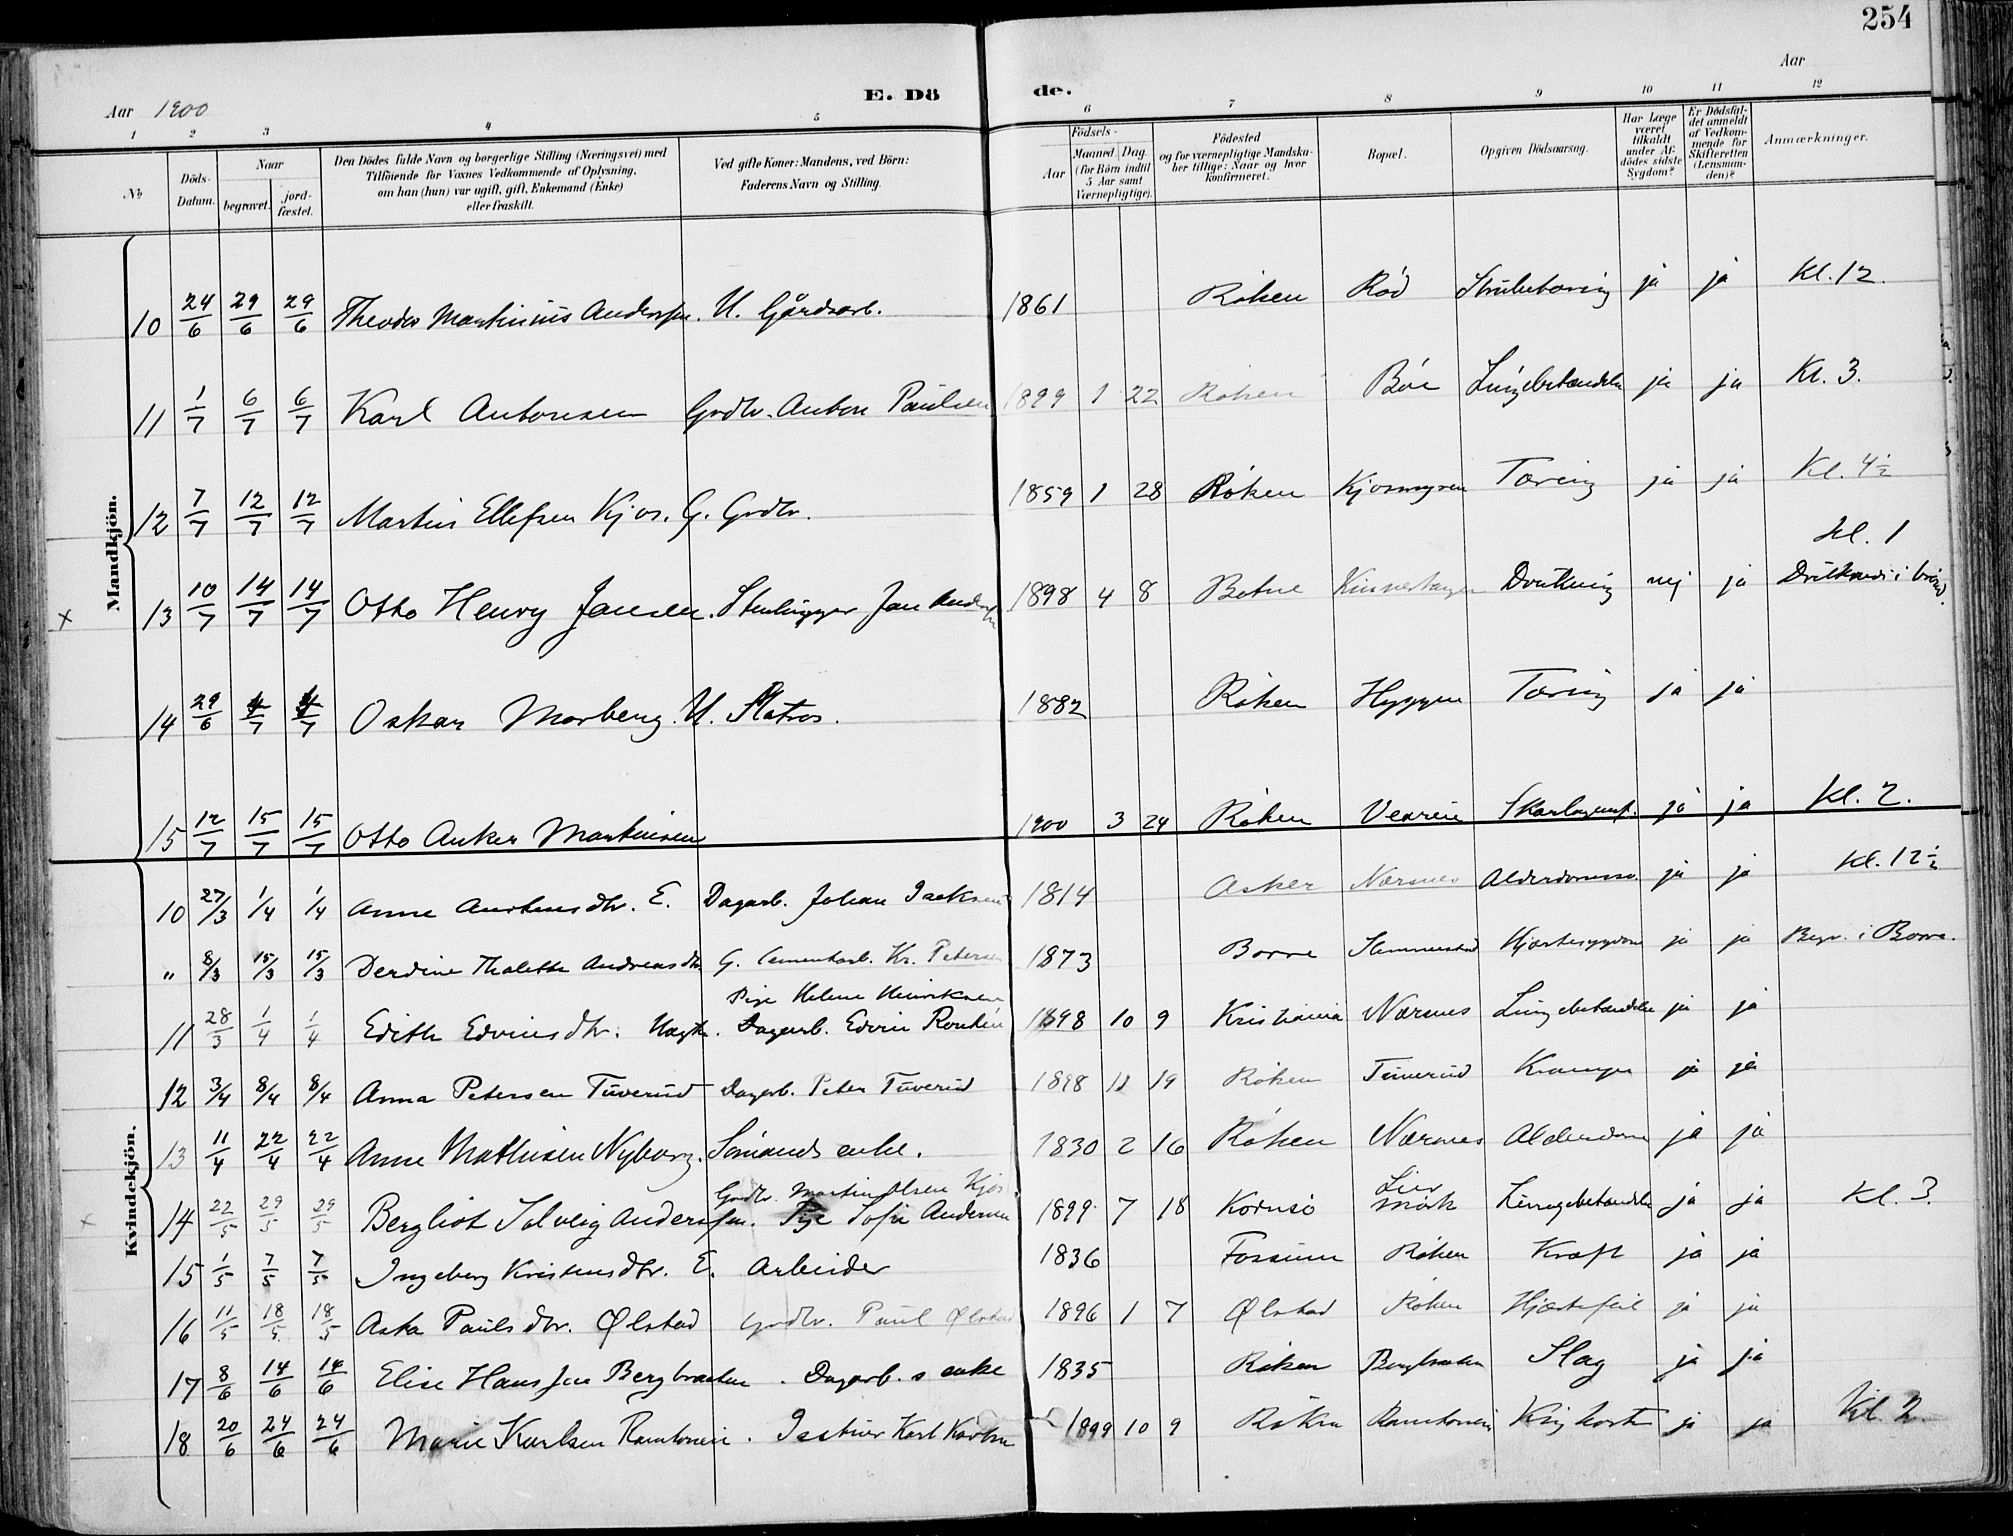 254
Aar 1900 E. Dö de. Aar
1 2 3 4 5 6 7 8 9 10 11 12
No. Döds-Datum. Naar begravet. jord-fæstet. Den Dödes fulde Navn og borgerlige Stilling (Næringsvei) med Tilföiende for Voxnes Vedkommende af Oplysning, om han (hun) var ugift, gift, Enkemand (Enke) eller fraskilt. Ved gifte Koner: Mandens, ved Börn: Faderens Navn og Stilling. Födsels- Aar Maaned. Dag. (for Börn indtil 5 Aar samt Værnepligtige). Födested og for værnepligtige Mandskaber tillige: Naar og hvor konfirmeret. Bopæl. Opgiven Dödsaarsag. Har Læge været tilkaldt under Afdödes sidste Sygdom? Er Dödsfaldet anmeldt af Vedkommende for Skifteretten (Lensmanden)? Anmærkninger.
Mandkjön.
10 24/6 29/6 29/6 Theodor Martinius Anderssen. U. Gårdsarb. 1861 Röken Röd Strubetæring ja ja Kl. 12.
11 1/7 6/7 6/7 Karl Antonsen Grdbr. Anton Paulsen 1899 1 22 Röken Böe Lungebetændelse ja ja Kl. 3.
12 7/7 12/7 12/7 Martin Ellefsen Kjos. G. Grdbr. 1859 1 28 Röken Kjosmyren Tæring ja ja Kl. 4½
x 13 10/7 14/7 14/7 Otto Henry Jansen. Stenhugger Jan Anders 1898 4 8 Botne Drukning nej ja Kl. 1 Druknede i brönd.
14 29/6 4/7 4/7 Oskar Morberg. U. Matros. 1882 Röken Hyggen Tæring ja ja
15 12/7 15/7 15/7 Otto Anker Martinsen 1900 3 24 Röken Skarlagensf. ja ja Kl. 2.
Kvindekjön.
10 27/3 1/4 1/4 Anne Austensdtr. E. Dagarb. Johan Isaksen 1814 Asker Nærsnes Alderdomss. ja ja Kl. 12½
" 8/3 15/3 15/3 Derdine Thalette Andreasdtr G. Cementarb. Kr. Petersen 1873 Borre Slemmestad Hjertesygdom ja ja Begr. i Borre.
Pige Helene Henriksen
11 28/3 1/4 1/4 Edith Edvinsdtr. Uægte. Dagarb. Edvin 1898 10 9 Kristiania Nærsnes Lungebetændelse ja ja
12 3/4 8/4 8/4 Anna Petersen Tuverud Dagarb. Peter Tuverud 1898 11 19 Röken Tuverud Kramper ja ja
13 11/4 22/4 22/4 Anne Mathisen Nyborg. Sömands enke. 1830 2 16 Röken Nærsnes Alderdom ja ja
Grdbr. Martin Olsen Kjos
x 14 22/5 29/5 29/5 Bergliot Solveig Anderssen. Pige Sofie Andersen 1899 7 18 Lier Mörk Lungebetændelse ja ja Kl. 3.
15 1/5 7/5 7/5 Ingeborg Kristensdtr. E. Arbeider 1836 Fossum Röken Kræft ja ja
16 11/5 18/5 18/5 Asta Paulsdtr. Ølstad Grdbr. Paul Ølstad 1896 1 7 Ølstad Röken Hjertefeil ja ja
17 8/6 14/6 14/6 Elise Hanssen Bergbraaten. Dagarb.s enke 1835 Röken Bergbraaten Slag ja ja
18 20/6 24/6 24/6 Marie Karlsen Ramtonein. Karl 1899 10 9 Röken Ramtonein Kighoste ja ja Kl. 2.